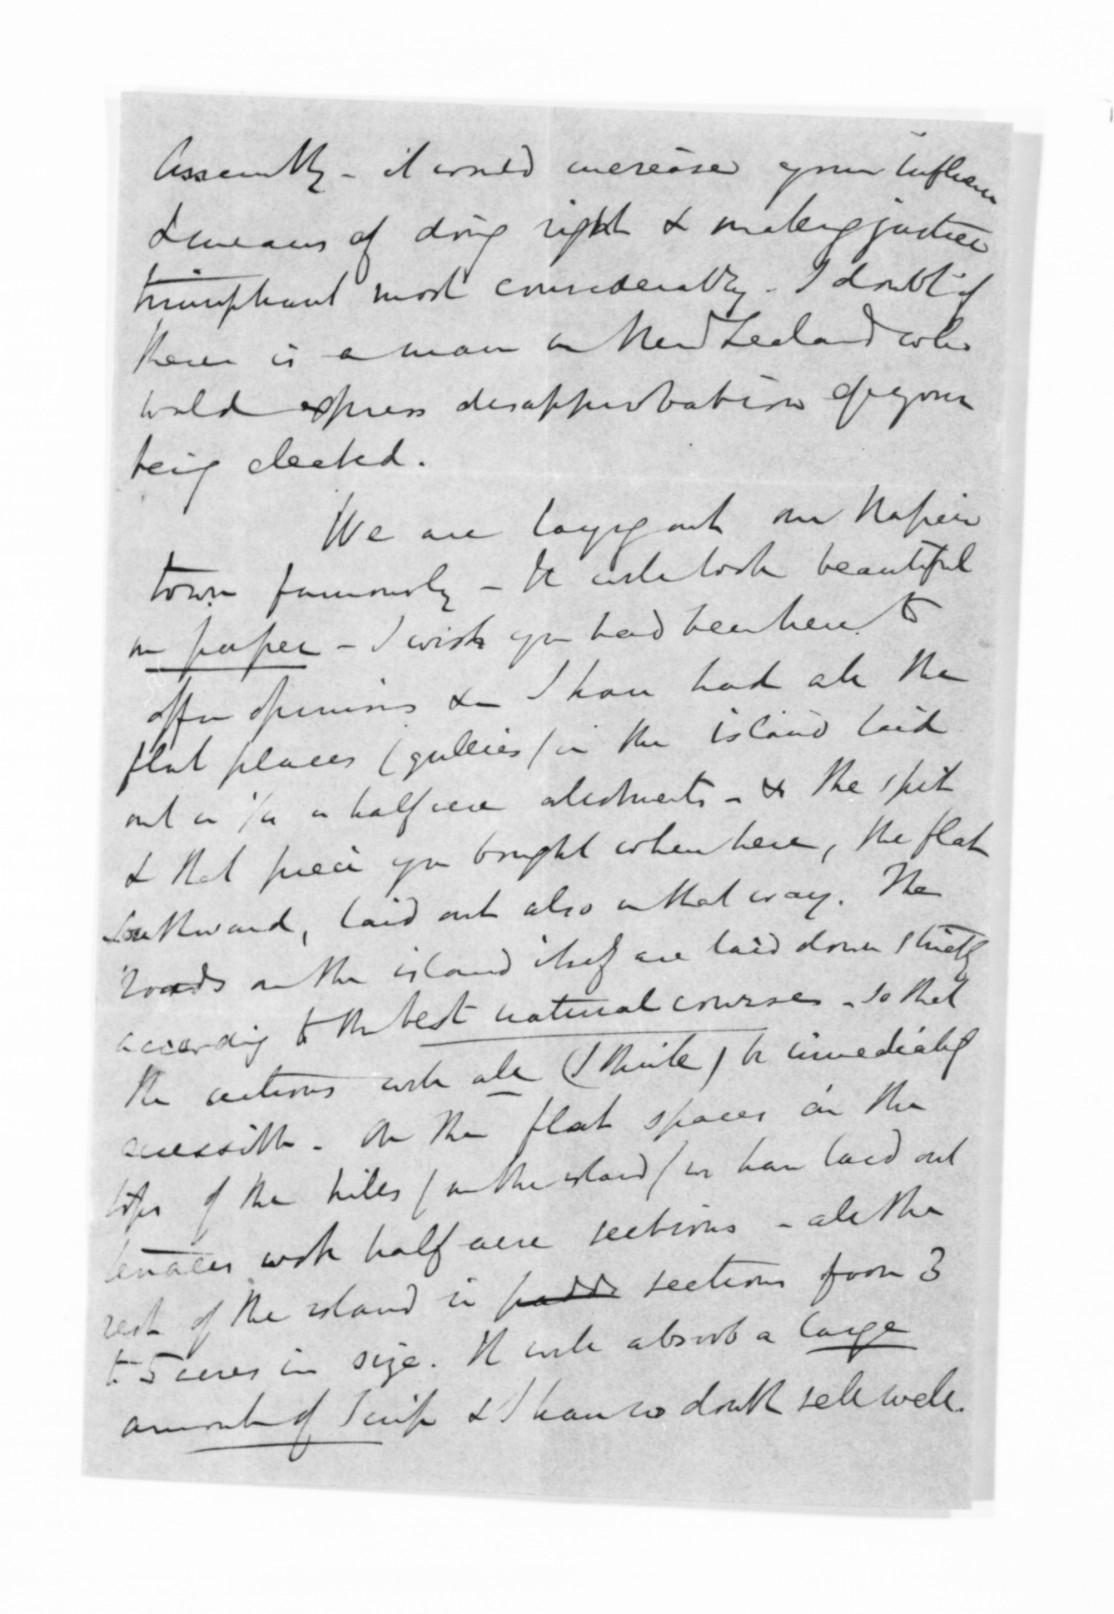 Assembly - it would increase your influence
& means of doing right & making justice
triumphant most considerably - I doubt if
there is a man in New Zealand who
would express disapprobation of your
being elected.
We are laying out our Napier
town famously - It will look beautiful
on paper - I wish you had been here to
offer opinions &c I have had all the
flat places (gullies) in the island laid
out in 1/4 a half acre allotments - & the spit
& that piece you bought when here, the flat
southward, laid out also in that way. The
roads on the island itself are laid down strictly
according to the best natural courses - so that
the sections will all (I think) be immediately
accessible. On the flat spaces on the
tops of the hills (on the island) we have laid out
terraces with half acre sections - all the
rest of the island in padds sections from 3
to 5 acres in size. It will absorb a large
amount of Scrip & I have no doubt sell well.